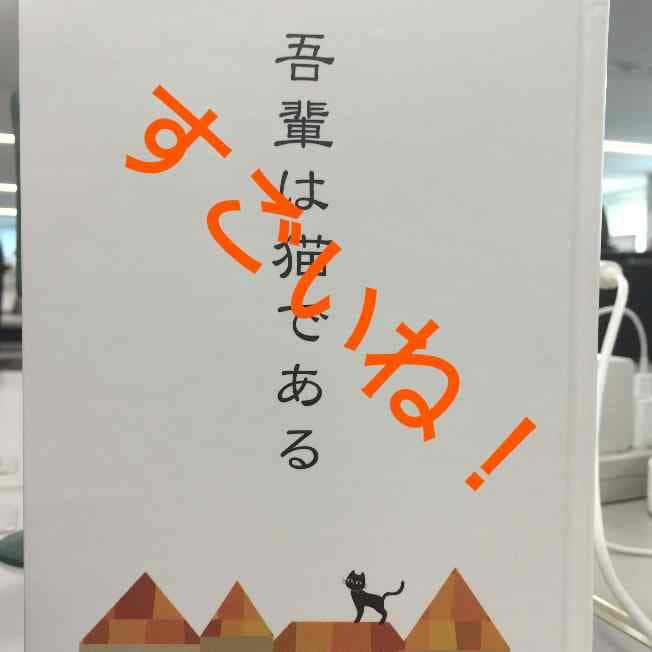 吾輩は猫である
すごいね！